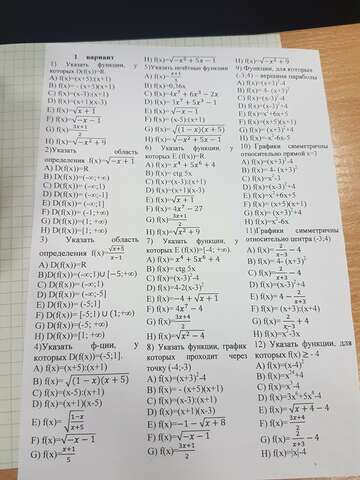 1 вариант
1) Указать функции, у
которых D(f(x))=R.
A) f(x)=(x+5):(x+1)
B) f(x)= - (x+5)(x+1)
C) f(x)=(x-3):(x+1)
D) f(x)=(x+1)(x-3)
E) f(x)=√x + 1
F) f(x)=√−x − 1
G) f(x)=(3x+1)/2
H) f(x)=√−x² + 9
2)Указать область
определения f(x)=√−x + 1
A) D(f(x))=R
B) D(f(x))=[-∞;+∞)
C) D(f(x))= (-∞;1)
D) D(f(x))= (-∞;-1]
E) D(f(x))= (-∞;1]
F) D(f(x))= (-1;+∞)
G) D(f(x))=(1; +∞)
H) D(f(x))=[1; +∞)
3) Указать область
определения f(x)=√(x+5)/(x−1)
A) D(f(x))=R
B)D(f(x))=(-∞;1)∪[−5;+∞)
C) D(f(x))= (-∞;1)
D) D(f(x))= (-∞;-5]
E) D(f(x))= [-5;1)
F) D(f(x))= [-5;1) ∪ (1;+∞)
G) D(f(x))=(-5; +∞)
H) D(f(x))=[1; +∞)
4)Указать ф-ции, у
которых D(f(x))=(-5;1].
A) f(x)=(x+5):(x+1)
B) f(x)=√(1 − x)(x + 5)
C) f(x)=(x-5):(x+1)
D) f(x)=(x+1)(x-5)
E) f(x)=√((1−x)/(x+5))
F) f(x)=√−x − 1
G) f(x)=(x+1)/5
H) f(x)=√−x² + 5x − 1
5)Указать нечётные функции
A) f(x)=(x+1)/5
B) f(x)=0,36x
C) f(x)=4x⁷ + 6x³ − 2x
D) f(x)= 3x⁷ + 5x³ − 1
E) f(x)=√−x − 1
F) f(x)= (x-5):(x+1)
G) f(x)=√(1 − x)(x + 5)
H) f(x)=√−x² + 5x − 1
6) Указать функции, у
которых E (f(x))=R.
A) f(x)=x⁴ + 5x⁶ + 4
B) f(x)= ctg 5x
C) f(x)=(x-3):(x+1)
D) f(x)=(x+1)(x-3)
E) f(x)=√x + 1
F) f(x)=4x² − 27
G) f(x)=(3x+1)/2
H) f(x)=√x² + 9
7) Указать функции, у
которых E (f(x))=[-4; +∞).
A) f(x)=x⁴ + 5x⁶ + 4
B) f(x)= ctg 5x
C) f(x)=(x-3)²-4
D) f(x)=4-2(x-3)²
E) f(x)=−4 + √x + 1
F) f(x)=4x⁷ − 4
G) f(x)=(3x+4)/2
H) f(x)=√x² − 4
8) Указать функции, график
которых проходит через
точку (-4;-3)
A) f(x)=(x+3)²-4
B) f(x)= - (x+5)(x+1)
C) f(x)=(x-3):(x+1)
D) f(x)=(x+1)(x-3)
E) f(x)=−1 − √x + 8
F) f(x)=√−x − 1
G) f(x)=(3x+1)/2
H) f(x)=√−x² + 9
9) Функции, для которых
(-3;4) – вершина параболы
A) f(x)=(x+3)²-4
B) f(x)= 4- (x+3)²
C) f(x)=(x-3)²-4
D) f(x)=(x-3)²+4
E) f(x)=x²+6x+5
F) f(x)=(x+5)(x+1)
G) f(x)= (x+3)²+4
H) f(x)=x²-6x-5
10) Графики симметричны
относительно прямой x=3
A) f(x)=(x+3)²-4
B) f(x)= 4- (x+3)²
C) f(x)=x²-3
D) f(x)=(x-3)²+4
E) f(x)=x²+6x+5
F) f(x)= (x+5)(x+1)
G) f(x)= (x+3)²+4
H) f(x)=x²-6x
11)Графики симметричны
относительно центра (-3;4)
A) f(x)=2/(x−3) − 4
B) f(x)= 4- (x+3)²
C) f(x)=2/(x+3) − 4
D) f(x)=(x-3)²+4
E) f(x)= 4 − 2/(x+3)
F) f(x)= (x+3):(x+4)
G) f(x)=2/(x−3) + 4
H) f(x)=x²-3x
12) Указать функции, для
которых f(x) ≥ - 4
A) f(x)=(x-4)²
B) f(x)=x²+4
C) f(x)=x²-4
D) f(x)=3x⁶+5x⁸-4
E) f(x)=√x + 4 − 4
F) f(x)=(3x+4)/2
G) f(x)=2/(x+3) − 4
H) f(x)=|x|-4